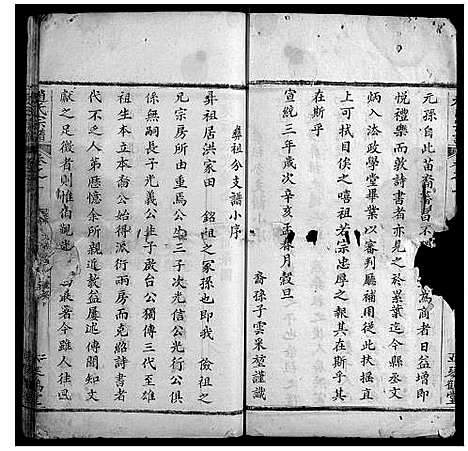 元孫自此苗裔蕃昌不
為商者日益增即
悅禮樂而敦詩書者亦見之於累葉迄今縣丞文
炳入法政學堂畢業以審判廳補用從此扶搖直
上可拭目俟之嘻祖若宗忠厚之報其在斯乎其
在斯乎
宣統三年歲次辛亥孟春月穀旦
裔孫子雲采堃謹識
彝祖分支譜小序
彝祖居洪家田 銘祖之冢孫也即我 儉祖之
兄宗房所由重焉公生三子次光信公光行公俱
係無嗣長子光義公生子啟台公獨傳三代至雄
祖生本立本喬公始得派衍兩房而克紹詩書者
代不乏人第歷憶余所親近教益屢述傳聞知文
獻之足徵者則惟
最著今雖人往風